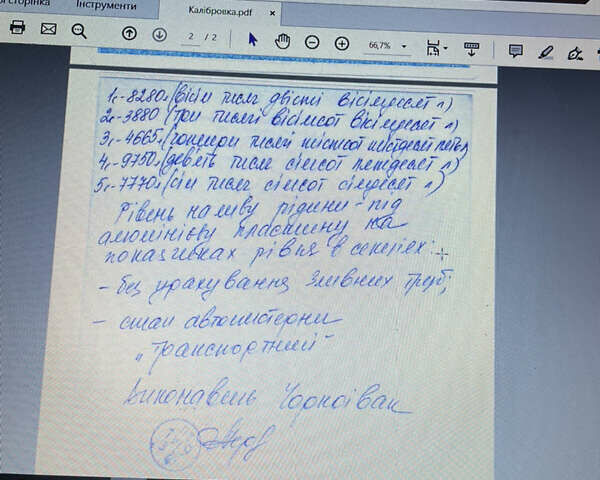 сторінка Інструменти Калібровка.pdf ×
2 / 2 66,7%
1с.-8280л (вісім тисяч двісті вісімдесят л)
2с.-3880 (три тисячі вісімсот вісімдесят л)
3с.-4665л (чотири тисячі шістсот шістдесят пять
4с.-9750л (девять тисяч сімсот пятдесят л)
5с.-7770л (сім тисяч сімсот сімдесят л)
Рівень наливу рідини - під
алюмінієву пластину на
показчиках рівня в секціях:
- без урахування зливних труб;
- стан автоцистерни
"Транспортний"
Виконавець Чорноіван